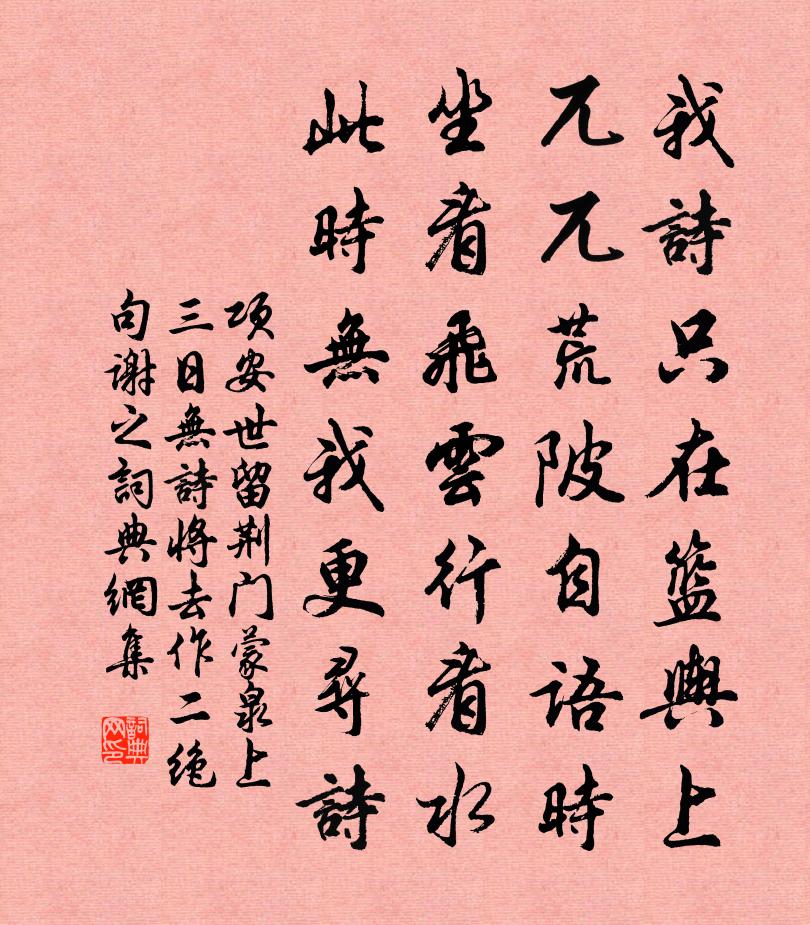 我詩只在籃輿上
兀兀荒陂自語時
坐看飛雲行看水
此時無我更尋詩
項安世留荆门蒙泉上
三日無詩將去作二绝
句謝之詞典網集
詞典網印